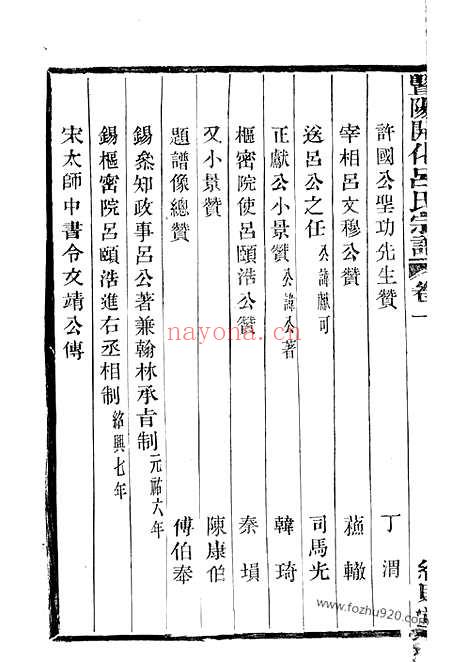 暨陽開化呂氏宗譜 卷一
許國公聖功先生贊 丁謂
宰相呂文穆公贊 蘇轍
送呂公之任 公諱獻可 司馬光
正獻公小景贊 公諱公著 韓琦
樞密院使呂頤浩公贊 秦塤
又小景贊 陳康伯
題譜像總贊 傅伯奉
錫叅知政事呂公著兼翰林承旨制 元祐六年
錫樞密院呂頤浩進右丞相制 紹興七年
宋太師中書令文靖公傳
nayona.cn
www.fozhu920.com